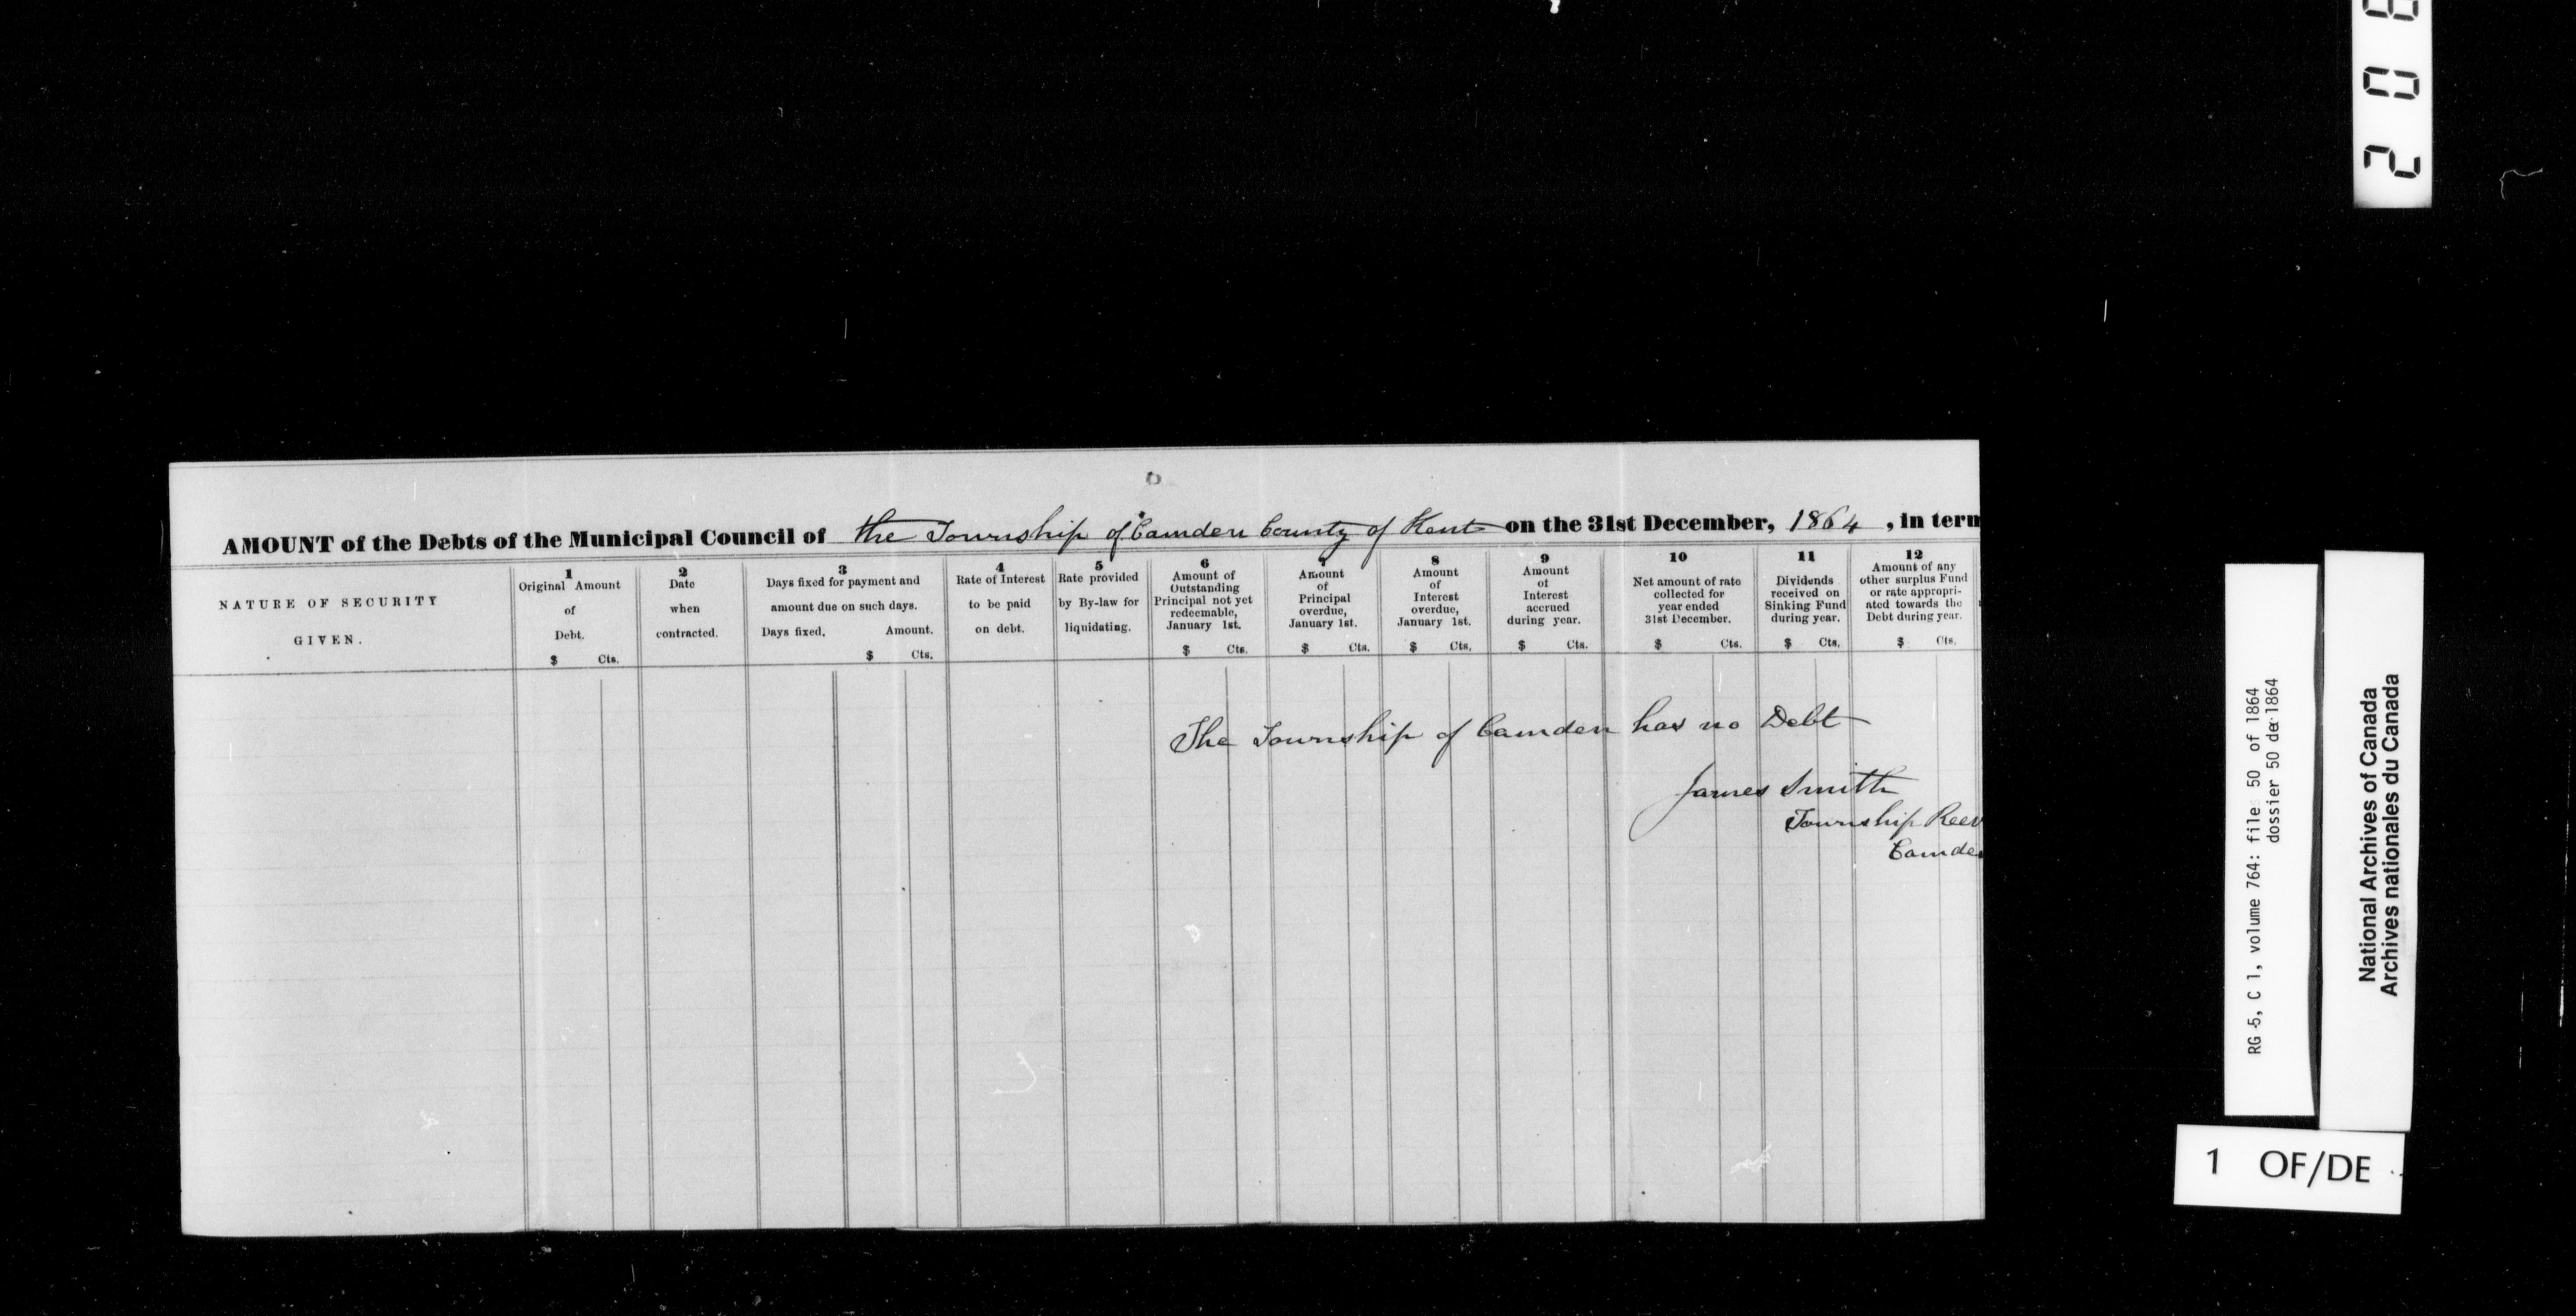 AMOUNT of the Debts of the Municipal Council of the Township of Camden County of Kent on the 31st December, 1864, in term
NATURE OF SECURITY
GIVEN.
1
Original Amount
of
Debt.
$ Cts.
2
Date
when
contracted.
3
Days fixed for payment and
amount due on such days.
Days fixed. Amount.
$ Cts.
4
Rate of Interest
to be paid
on debt.
5
Rate provided
by By-law for
liquidating.
6
Amount of
Outstanding
Principal not yet
redeemable,
January 1st.
$ Cts.
7
Amount
of
Principal
overdue,
January 1st.
$ Cts.
8
Amount
of
Interest
overdue,
January 1st.
$ Cts.
9
Amount
of
Interest
accrued
during year.
$ Cts.
10
Net amount of rate
collected for
year ended
31st December.
$ Cts.
11
Dividends
received on
Sinking Fund
during year.
$ Cts.
12
Amount of any
other surplus Fund
or rate appropri-
ated towards the
Debt during year.
$ Cts.
The Township of Camden has no Debt
James Smith
Township Reev
Camden
RG 5, C 1, volume 764: file 50 of 1864
dossier 50 de 1864
National Archives of Canada
Archives nationales du Canada
1 OF/DE
2 0